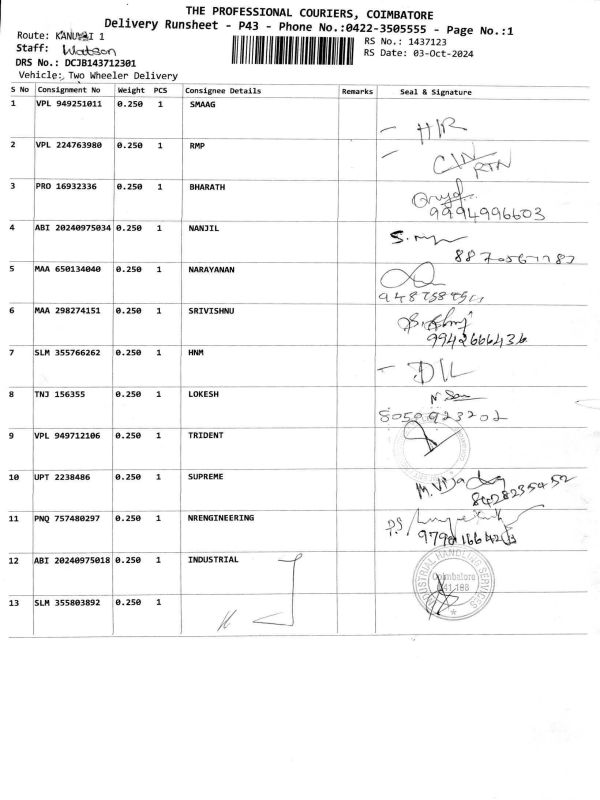 THE PROFESSIONAL COURIERS, COIMBATORE
Delivery Runsheet - P43 - Phone No.:0422-3505555 - Page No.:1
Route: KANUVAI 1
RS No.: 1437123
Staff: Watson
RS Date: 03-Oct-2024
DRS No.: DCJB143712301
Vehicle: Two Wheeler Delivery
S No Consignment No Weight PCS Consignee Details Remarks Seal & Signature
1 VPL 949251011 0.250 1 SMAAG
- H/R
2 VPL 224763980 0.250 1 RMP
- RTN
3 PRO 16932336 0.250 1 BHARATH
9994996603
4 ABI 20240975034 0.250 1 NANJIL
5 MAA 650134040 0.250 1 NARAYANAN
6 MAA 298274151 0.250 1 SRIVISHNU
9942666436
7 SLM 355766262 0.250 1 HNM
- D/L
8 TNJ 156355 0.250 1 LOKESH
8050923202
9 VPL 949712106 0.250 1 TRIDENT
10 UPT 2238486 0.250 1 SUPREME
8428235452
11 PNQ 757480297 0.250 1 NRENGINEERING
12 ABI 20240975018 0.250 1 INDUSTRIAL
INDUSTRIAL HANDLING SERVICES
Coimbatore
13 SLM 355803892 0.250 1